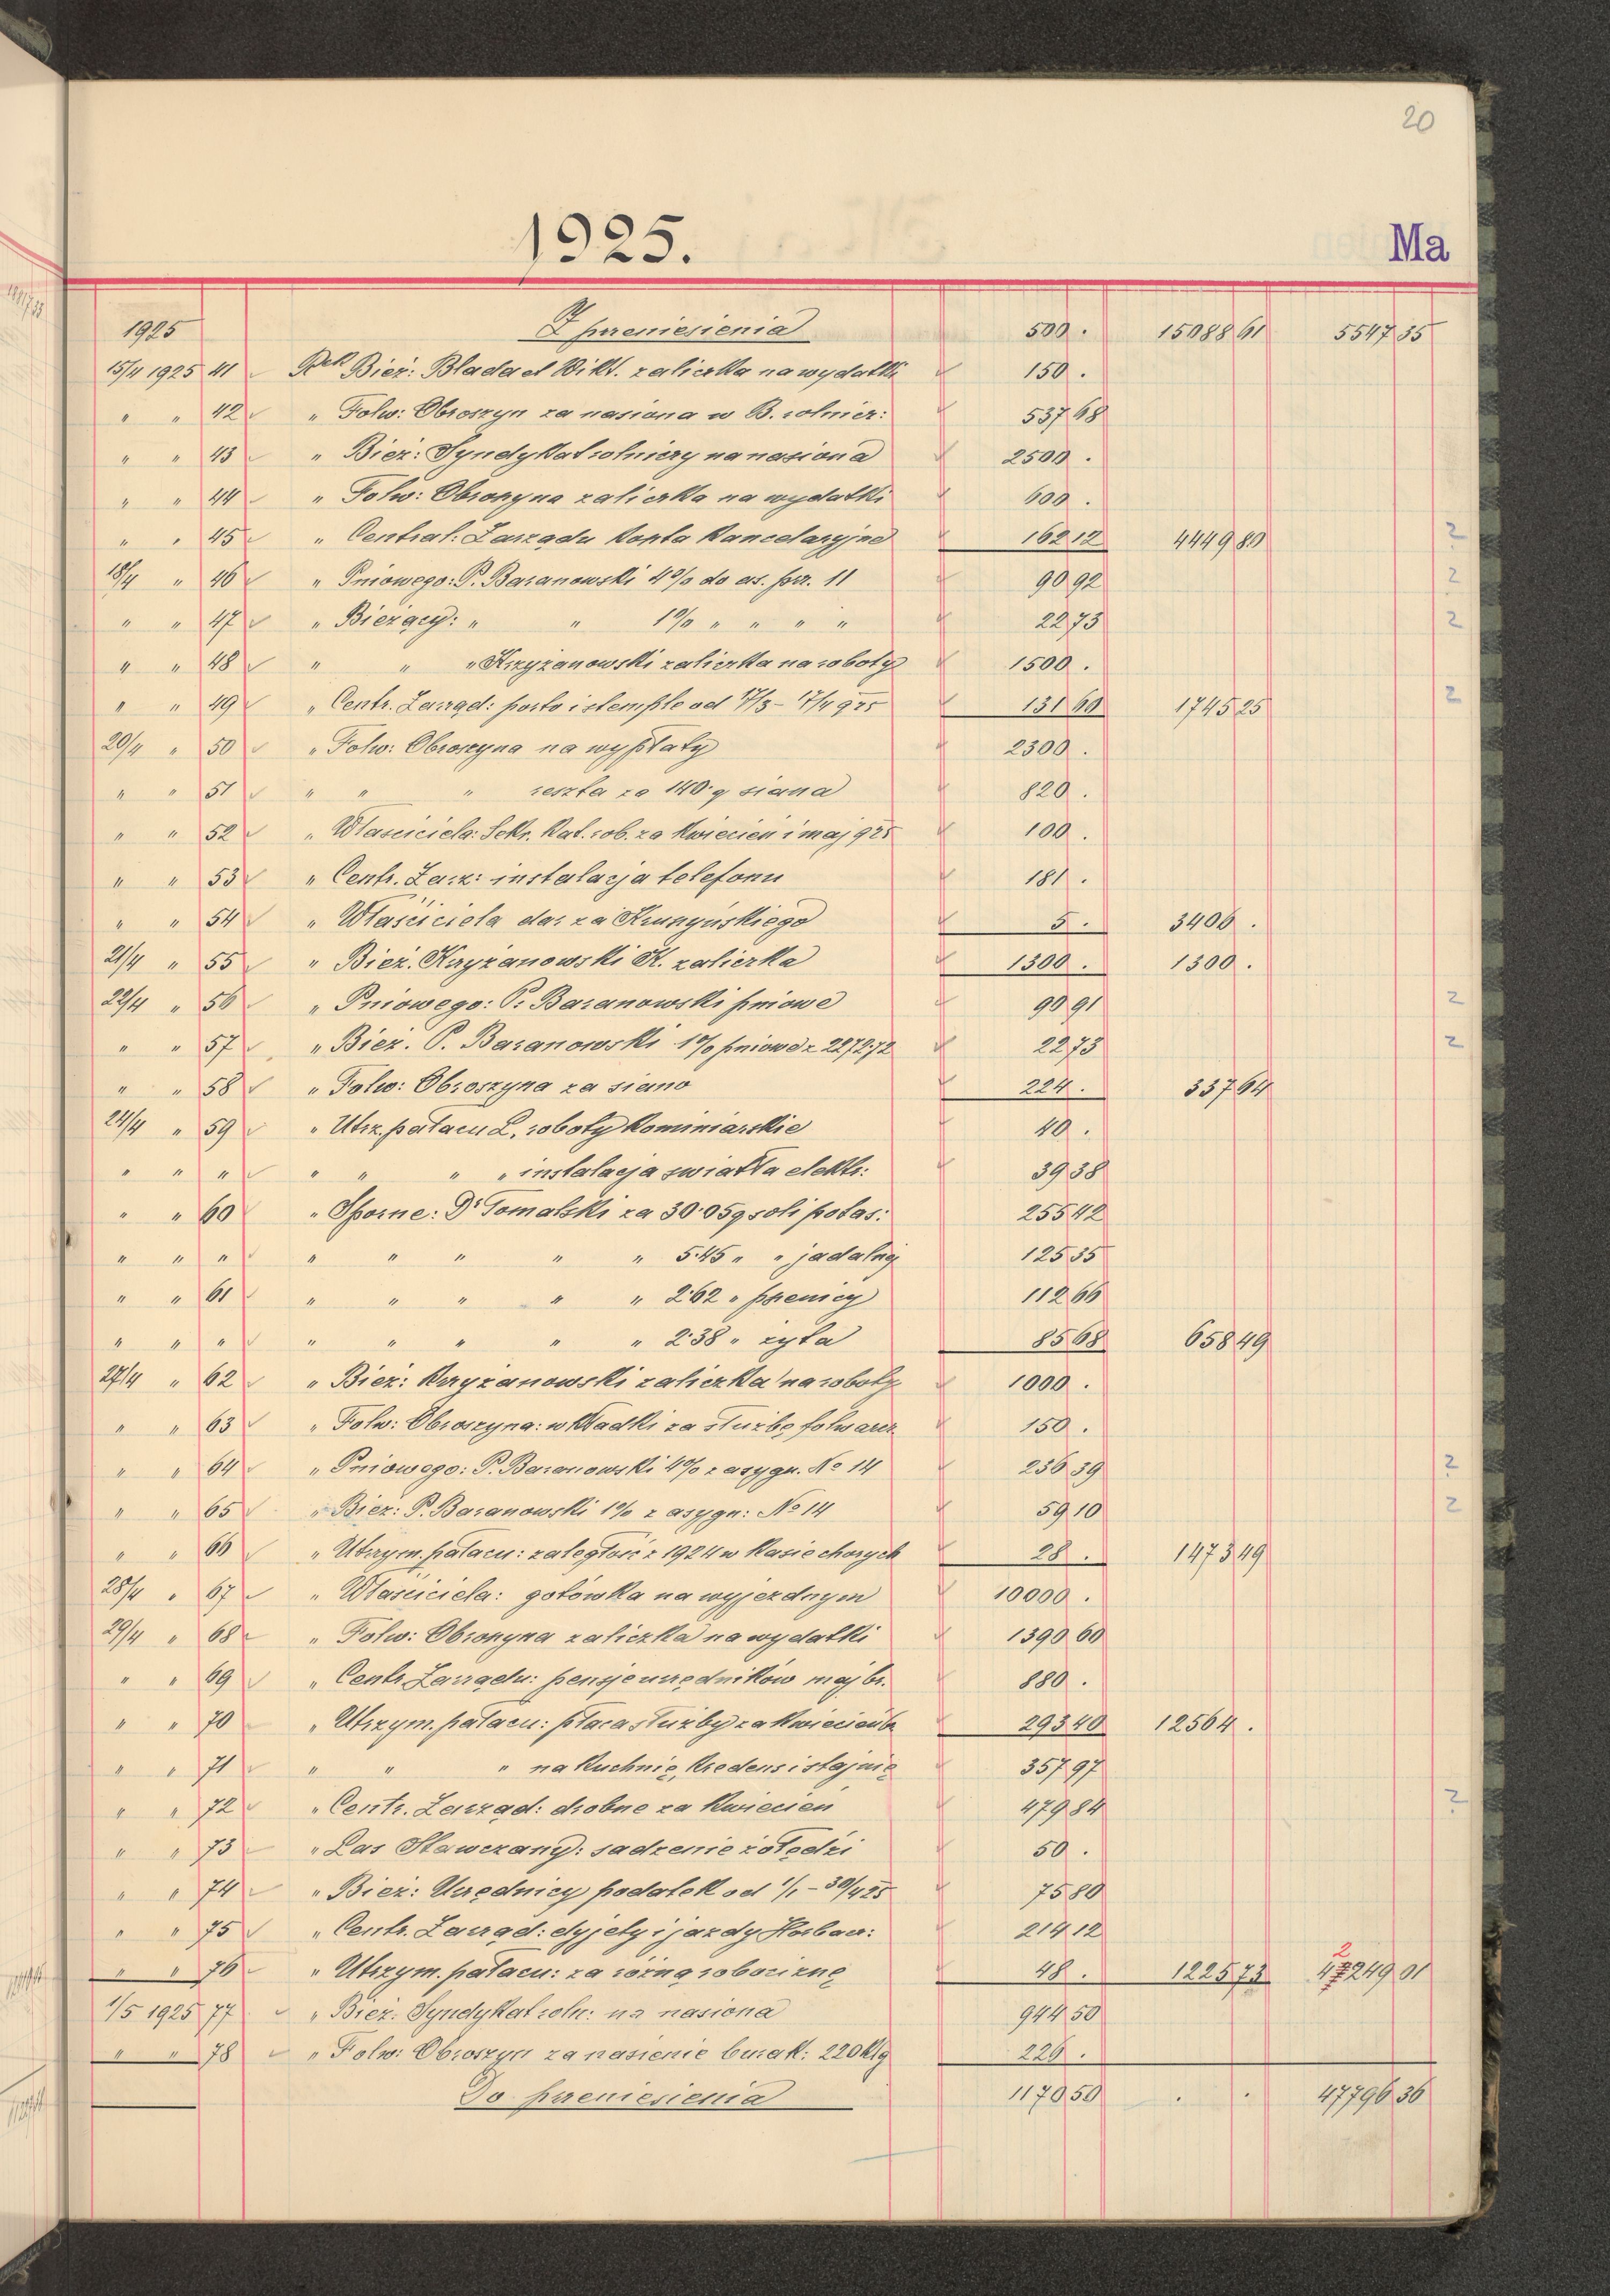 20
1925.
Ma
1925 Z przeniesienia 500 . 15088 61 5547 35
15/4 1925 41 Rek Bież: Bladael Wikt. zaliczka na wydatki 150 .
" " 42 " Folw: Obroszyn za nasiona w B. rolnicz: 537 68
" " 43 " Bież: Syndykat rolniczy na nasiona 2500 .
" " 44 " Folw: Obroszyna zaliczka na wydatki 600 .
" " 45 " Central: Zarządu konta kancelaryjne 162 12 4449 80 ?
18/4 " 46 " Pniowego: P. Baranowski 4% do as. prz. 11 90 92 ?
" " 47 " Bieżący: " " 1% " " " " 22 73 ?
" " 48 " " " Krzyżanowski zaliczka na roboty 1500 .
" " 49 " Centr. Zarząd: porto i stemple od 17/3 - 17/4 925 131 60 1745 25 ?
20/4 " 50 " Folw: Obroszyna na wypłaty 2300 .
" " 51 " " " reszta za 140 q siana 820 .
" " 52 " Właściciela: Sekr. Kat. rob. za kwiecień i maj 925 100 .
" " 53 " Centr. Zarz: instalacja telefonu 181 .
" " 54 " Właściciela dar za Kruszyńskiego 5 . 3406 .
21/4 " 55 " Bież. Krzyżanowski K. zaliczka 1300 . 1300 .
22/4 " 56 " Pniowego: P. Baranowski pniowe 90 91 ?
" " 57 " Bież. P. Baranowski 1% pniowe z 2272.72 22 73 ?
" " 58 " Folw: Obroszyna za siano 224 . 337 64
24/4 " 59 " Utrz. pałacu L. roboty kominiarskie 40 .
" " " " " " " instalacja światła elektr: 39 38
" " 60 " Sporne: Dr Tomalski za 30.05 q soli potas: 255 42
" " " " " " " " 5.45 " " jadalnej 125 35
" " 61 " " " " " 2.62 " pszenicy 112 66
" " " " " " " " 2.38 " żyta 85 68 658 49
27/4 " 62 " Bież: Krzyżanowski zaliczka na roboty 1000 .
" " 63 " Folw: Obroszyna: wkładki za służbę folwarcz. 150 .
" " 64 " Pniowego: P. Baranowski 4% z asygn. No 14 236 39 ?
" " 65 " Bież: P. Baranowski 1% z asygn: No 14 59 10 ?
" " 66 " Utrzym. pałacu: zaległość z 1924 w Kasie chorych 28 . 1473 49
28/4 " 67 " Właściciela: gotówka na wyjezdnym 10000 .
29/4 " 68 " Folw: Obroszyna zaliczka na wydatki 1390 60
" " 69 " Centr. Zarządu: pensje urzędników maj br. 880 .
" " 70 " Utrzym. pałacu: płaca służby za kwiecień br 293 40 12564 .
" " 71 " " " na kuchnię, kredens i stajnię 357 97
" " 72 " Centr. Zarząd: drobne za kwiecień 479 84 ?
" " 73 " Las Stawczany: sadzenie żołędzi 50 .
" " 74 " Bież: Urzędnicy podatek od 1/1 - 30/4 25 75 80
" " 75 " Centr. Zarząd: dyjety i jazdy Horbacz: 214 12
" " 76 " Utrzym. pałacu: za różną robociznę 48 . 1225 73 42249 01
1/5 1925 77 " Bież. Syndykat roln: na nasiona 944 50
" " 78 " Folw: Obroszyn za nasienie burak: 220 klg 226 .
Do przeniesienia 1170 50 . . 47796 36